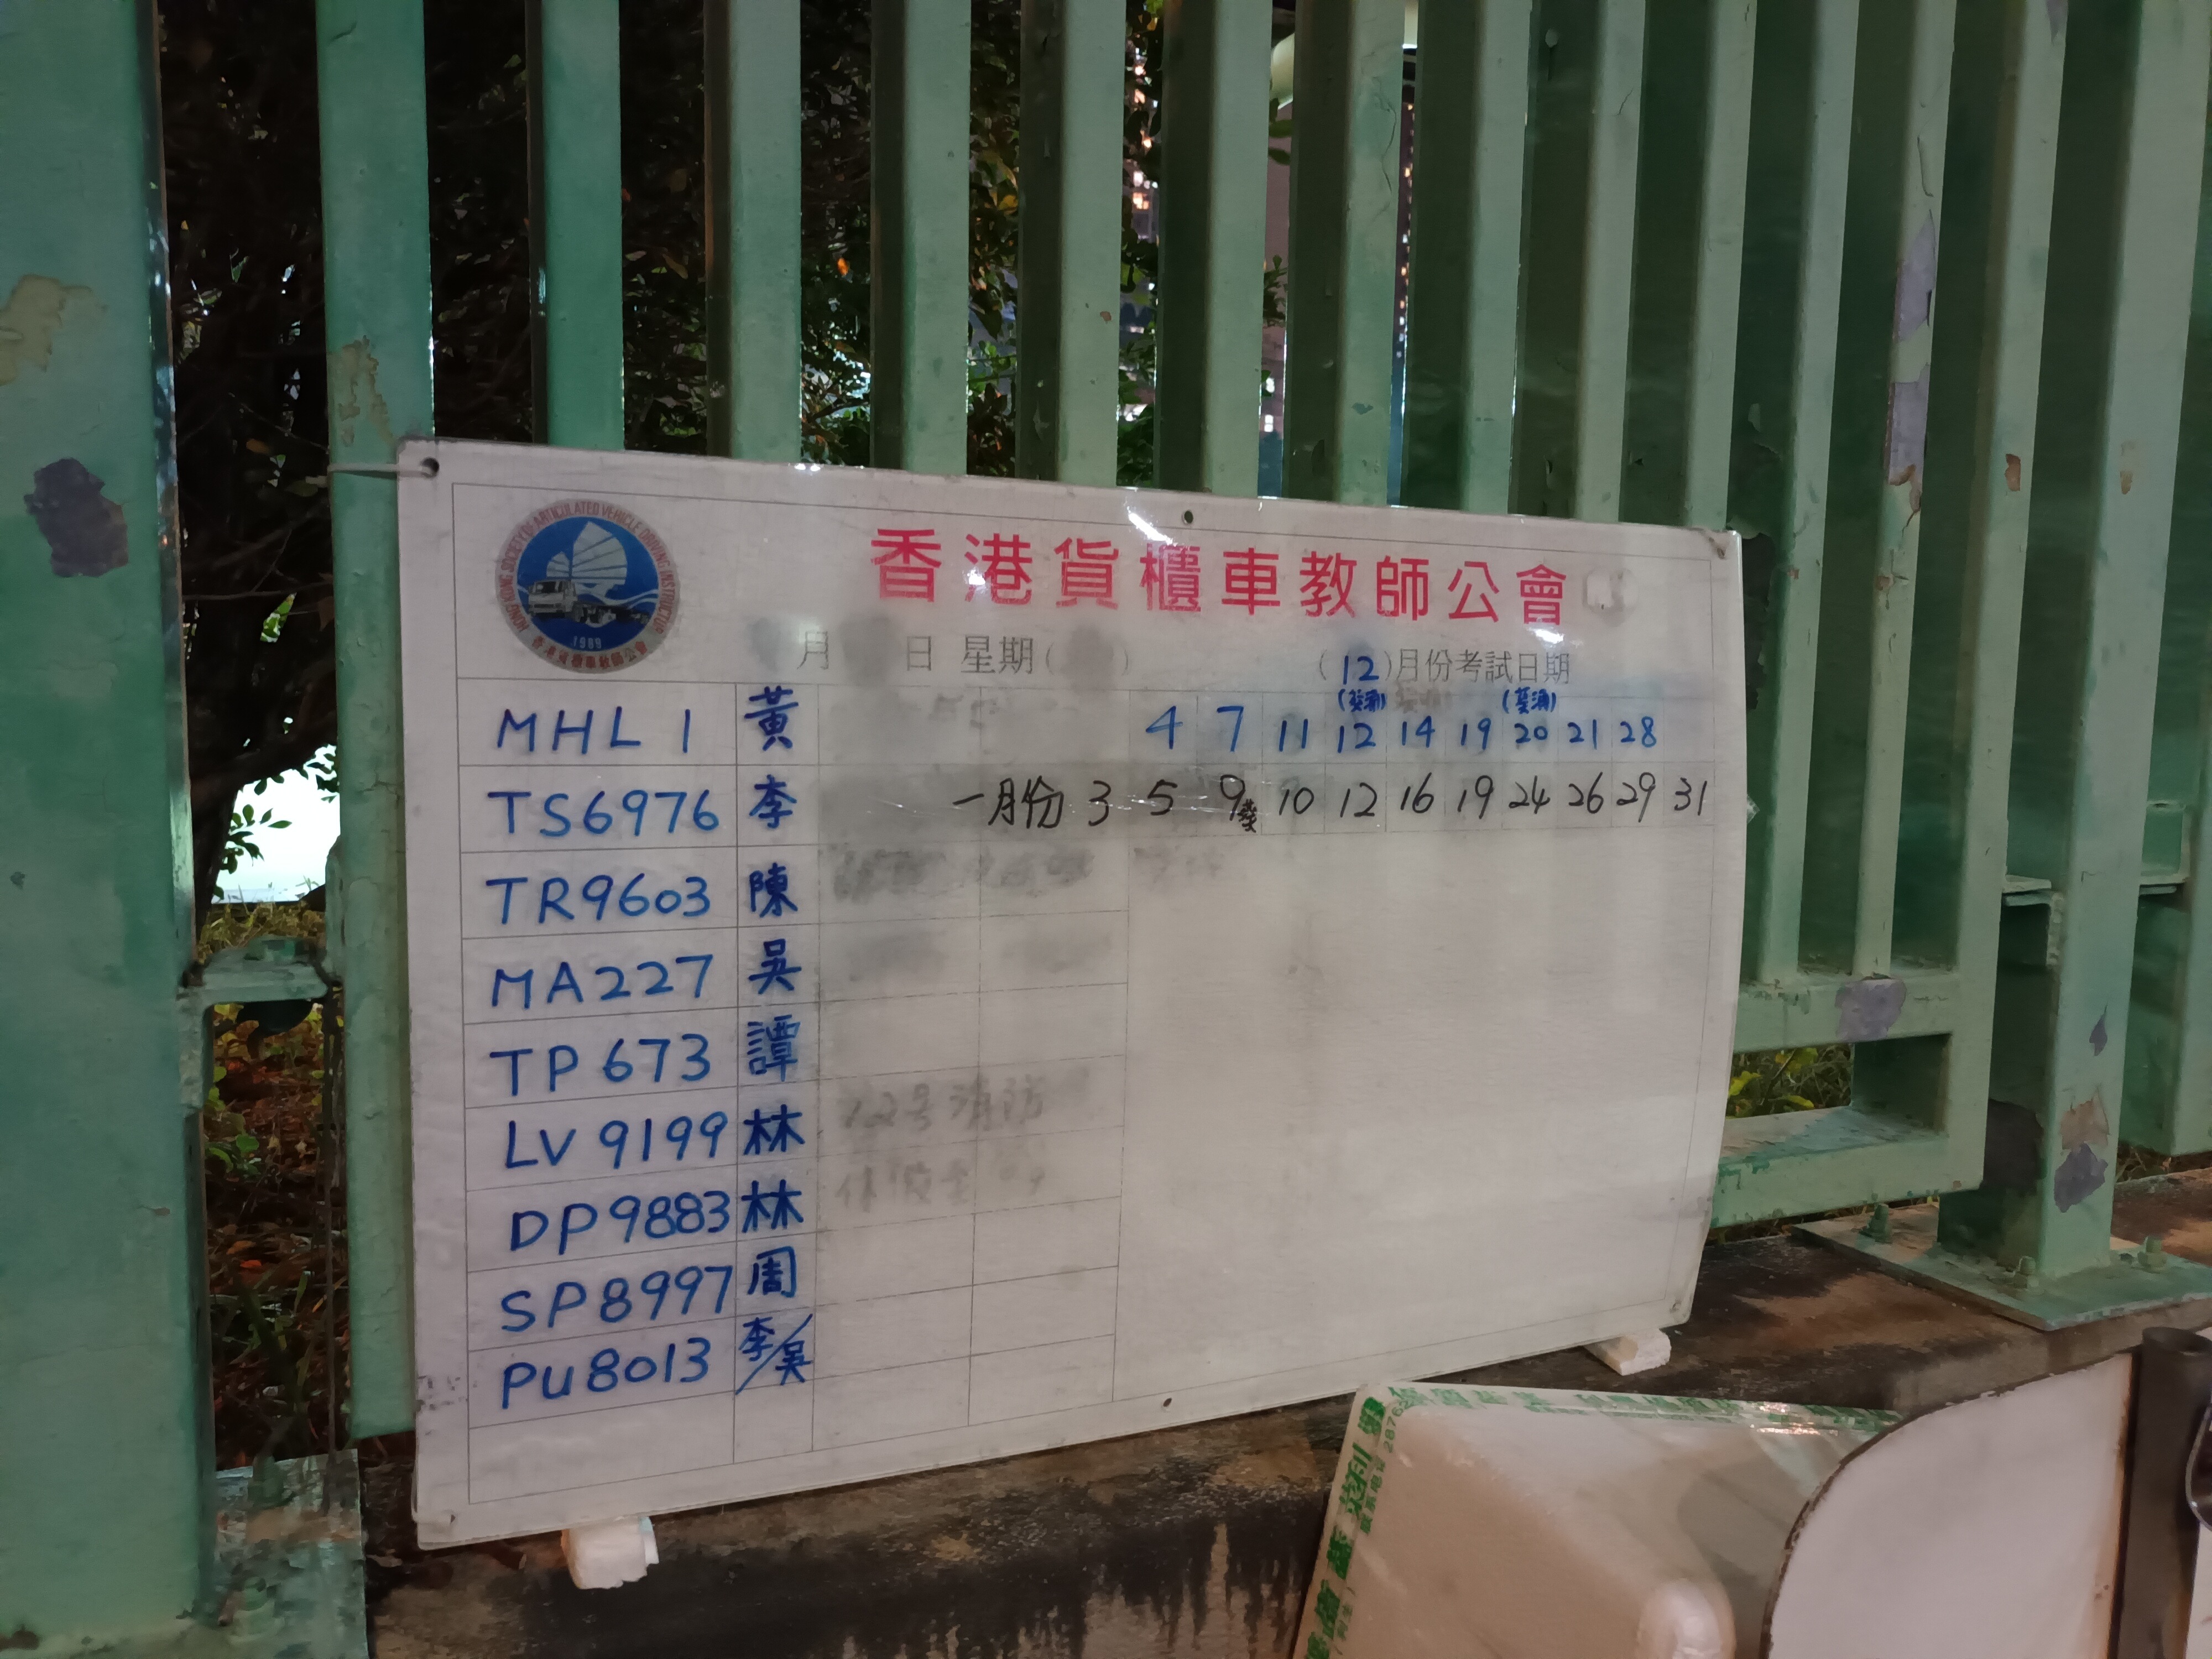 HONG KONG SOCIETY OF ARTICULATED VEHICLE DRIVING INSTRUCTOR
1989
香港貨櫃車教師公會
香港貨櫃車教師公會
月 日 星期( ) (12)月份考試日期
(葵涌) (葵涌)
MHL 1 黃 4 7 11 12 14 19 20 21 28
TS6976 李 一月份 3 5 9葵 10 12 16 19 24 26 29 31
TR9603 陳
MA227 吳
TP673 譚
LV9199 林 消防
DP9883 林
SP8997 周
PU8013 李/吳